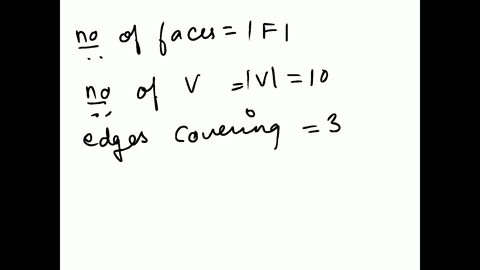 no of faces = |F|
no of V = |V| = 10
edges covering = 3